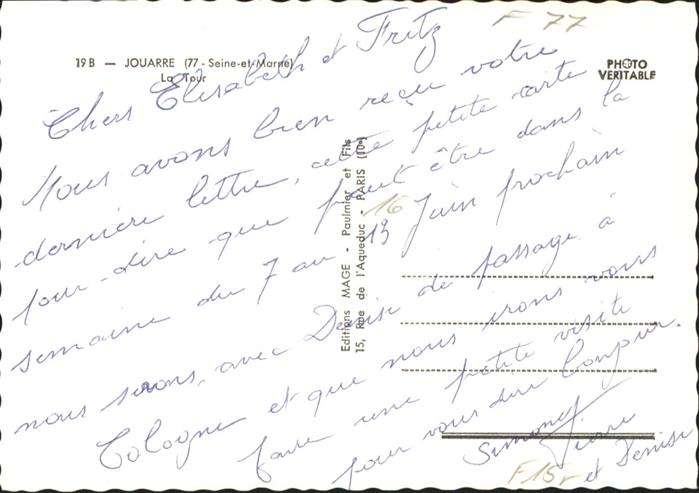 F 77
19 B — JOUARRE (77 - Seine-et-Marne)
La Tour
PHOTO
VÉRITABLE
Chers Elisabeth et Fritz
Nous avons bien reçu votre
dernière lettre, cette petite carte
pour dire que peut être dans la
semaine du 7 au 13 Juin prochain
nous serons, avec Denise de passage à
Cologne et que nous irons vous
faire une petite visite
pour vous dire bonjour.
Simone
Pierre
et Denise
Editions MAGE - Paulmier et Fils
15, Rue de l'Aqueduc - PARIS (10e)
16
F15r